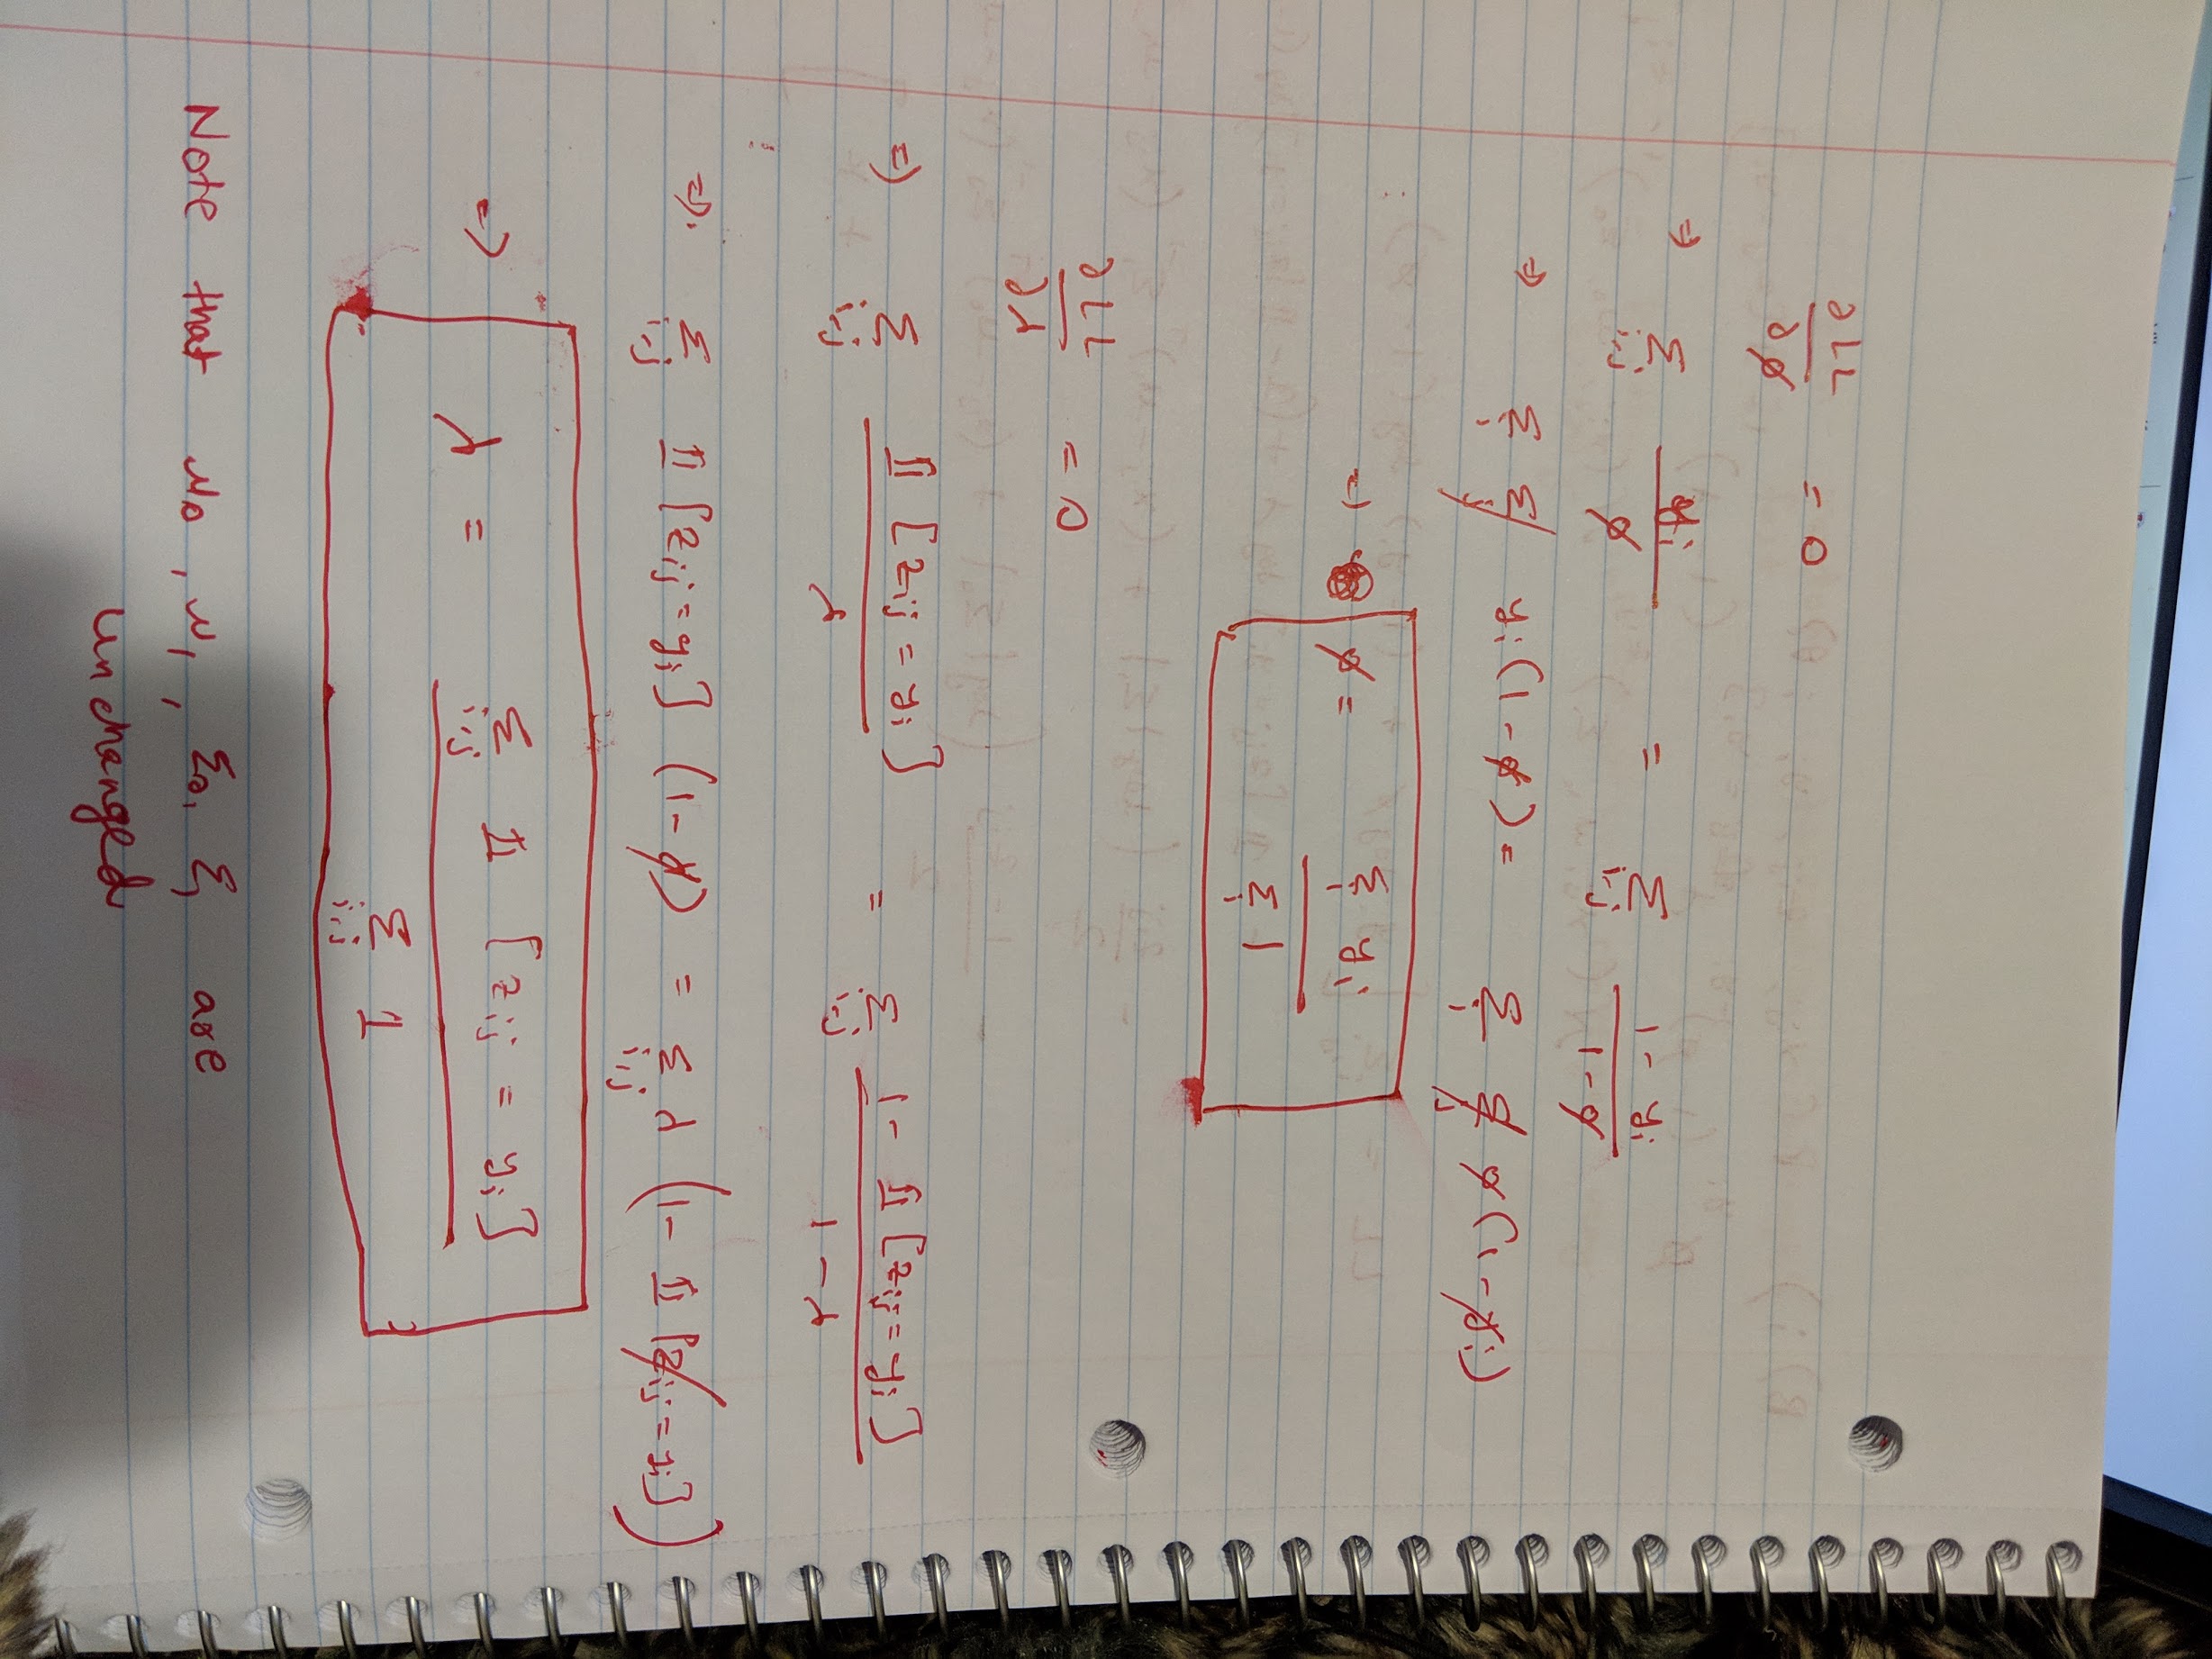 ∂LL/∂φ = 0
⇒ Σ_{i,j} y_i/φ = Σ_{i,j} (1 - y_i)/(1 - φ)
⇒ Σ_i Σ_j y_i(1 - φ) = Σ_i Σ_j φ(1 - y_i)
⇒ φ = Σ_i y_i / Σ_i 1
∂LL/∂λ = 0
⇒ Σ_{i,j} 𝟙[z_ij = y_i]/λ = Σ_{i,j} (1 - 𝟙[z_ij = y_i])/(1 - λ)
⇒ Σ_{i,j} 𝟙[z_ij = y_i] (1 - λ) = Σ_{i,j} λ(1 - 𝟙[z_ij = y_i])
⇒ λ = Σ_{i,j} 𝟙[z_ij = y_i] / Σ_{i,j} 1
Note that μ0, μ1, Σ0, Σ1 are
unchanged